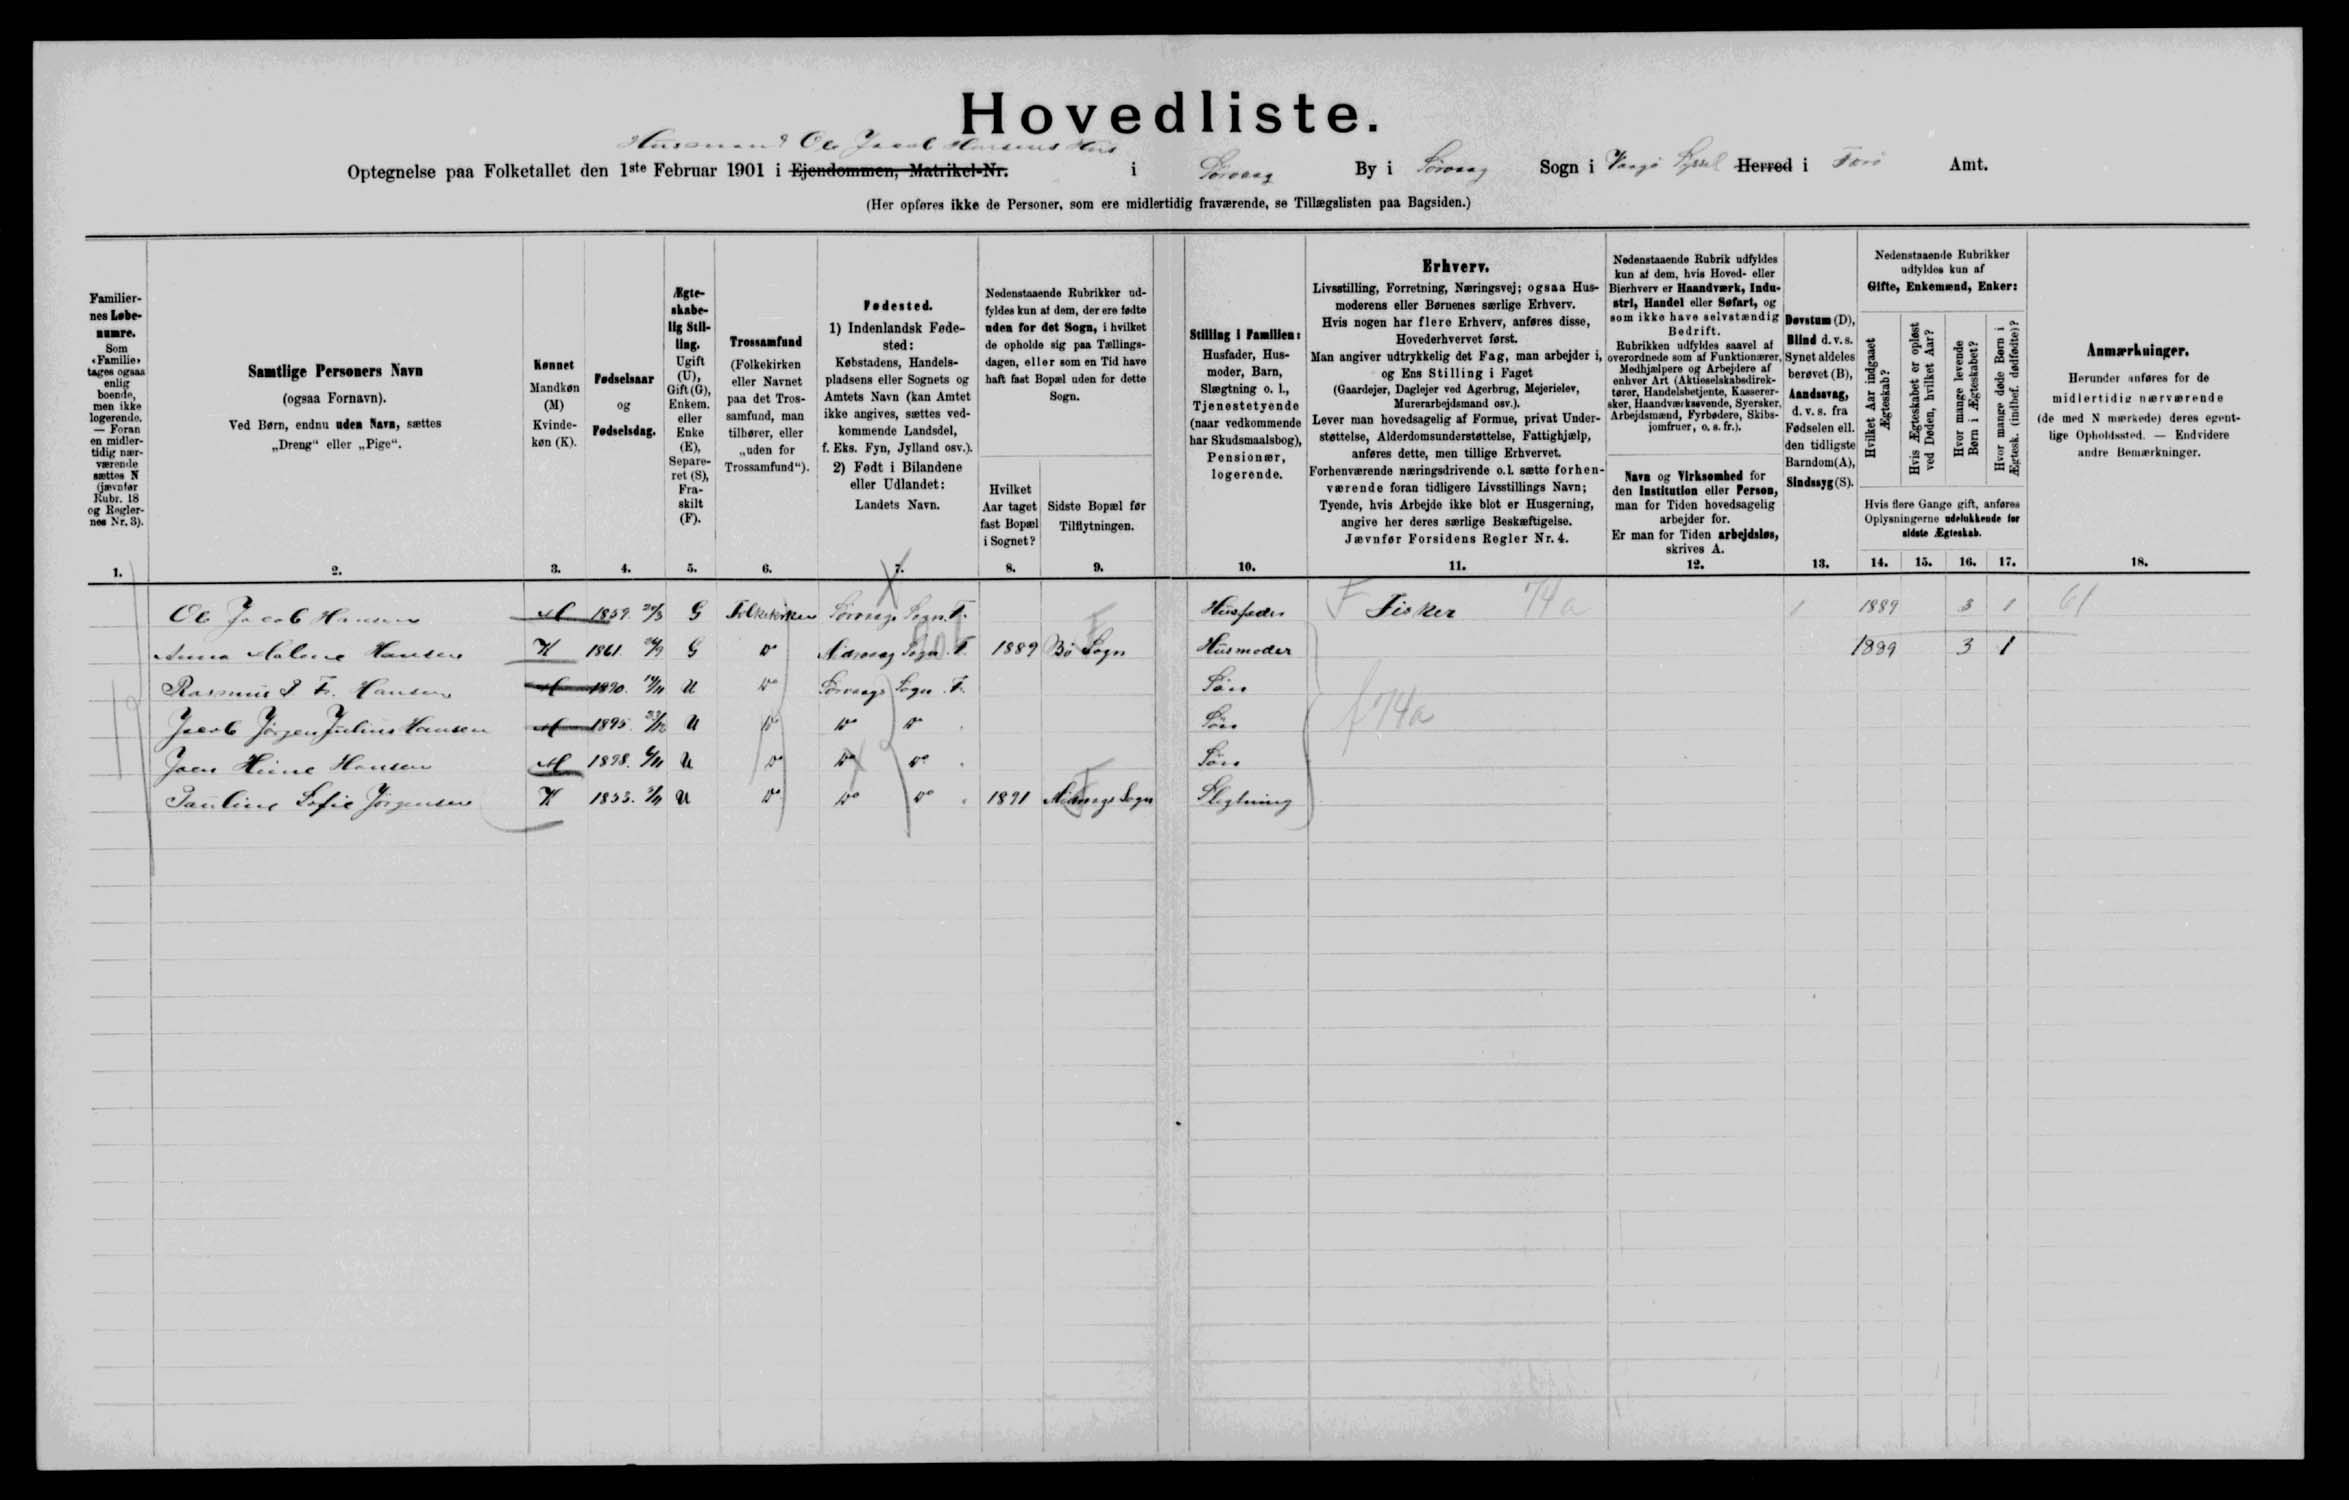 Hovedliste.
Husmand Ole Jacob Hansens Hus
Optegnelse paa Folketallet den 1ste Februar 1901 i Ejendommen, Matrikel-Nr. i Sørvaag By i Sørvaag Sogn i Vaagø Syssel Herred i Færø Amt.
(Her opføres ikke de Personer, som ere midlertidig fraværende, se Tillægslisten paa Bagsiden.)
Familiernes Løbenumre.
Som «Familie» tages ogsaa enlig boende, men ikke logerende. — Foran en midlertidig nærværende sættes N (jævnfør Rubr. 18 og Reglernes Nr. 3).
Samtlige Personers Navn
(ogsaa Fornavn).
Ved Børn, endnu uden Navn, sættes
„Dreng“ eller „Pige“.
Kønnet
Mandkøn
(M)
Kvindekøn (K).
Fødselsaar
og
Fødselsdag.
Ægteskabelig Stilling.
Ugift (U), Gift (G), Enkem. eller Enke (E), Separeret (S), Fraskilt (F).
Trossamfund
(Folkekirken eller Navnet paa det Trossamfund, man tilhører, eller „uden for Trossamfund“).
Fødested.
1) Indenlandsk Fødested:
Købstadens, Handelspladsens eller Sognets og Amtets Navn (kan Amtet ikke angives, sættes vedkommende Landsdel, f. Eks. Fyn, Jylland osv.).
2) Født i Bilandene eller Udlandet:
Landets Navn.
Nedenstaaende Rubrikker udfyldes kun af dem, der ere fødte uden for det Sogn, i hvilket de opholde sig paa Tællingsdagen, eller som en Tid have haft fast Bopæl uden for dette Sogn.
Hvilket Aar taget fast Bopæl i Sognet?
Sidste Bopæl før Tilflytningen.
Stilling i Familien:
Husfader, Husmoder, Barn, Slægtning o. l., Tjenestetyende (naar vedkommende har Skudsmaalsbog), Pensionær, logerende.
Erhverv.
Livsstilling, Forretning, Næringsvej; ogsaa Husmoderens eller Børnenes særlige Erhverv.
Hvis nogen har flere Erhverv, anføres disse, Hovederhvervet først.
Man angiver udtrykkelig det Fag, man arbejder i, og Ens Stilling i Faget
(Gaardejer, Daglejer ved Agerbrug, Mejerielev, Murerarbejdsmand osv.).
Lever man hovedsagelig af Formue, privat Understøttelse, Alderdomsunderstøttelse, Fattighjælp, anføres dette, men tillige Erhvervet.
Forhenværende næringsdrivende o.l. sætte forhenværende foran tidligere Livsstillings Navn;
Tyende, hvis Arbejde ikke blot er Husgerning, angive her deres særlige Beskæftigelse.
Jævnfør Forsidens Regler Nr. 4.
Nedenstaaende Rubrik udfyldes kun af dem, hvis Hoved- eller Bierhverv er Haandværk, Industri, Handel eller Søfart, og som ikke have selvstændig Bedrift.
Rubrikken udfyldes saavel af overordnede som af Funktionærer, Medhjælpere og Arbejdere af enhver Art (Aktieselskabsdirektører, Handelsbetjente, Kasserersker, Haandværkssvende, Syersker, Arbejdsmænd, Fyrbødere, Skibsjomfruer, o. s. fr.).
Navn og Virksomhed for den Institution eller Person, man for Tiden hovedsagelig arbejder for.
Er man for Tiden arbejdsløs, skrives A.
Døvstum (D), Blind d. v. s. Synet aldeles berøvet (B), Aandssvag, d. v. s. fra Fødselen ell. den tidligste Barndom (A), Sindssyg (S).
Nedenstaaende Rubrikker udfyldes kun af
Gifte, Enkemænd, Enker:
Hvilket Aar indgaaet Ægteskab?
Hvis Ægteskabet er opløst ved Døden, hvilket Aar?
Hvor mange levende Børn i Ægteskabet?
Hvor mange døde Børn i Ægtesk. (indbef. dødfødte)?
Hvis flere Gange gift, anføres Oplysningerne udelukkende for sidste Ægteskab.
Anmærkninger.
Herunder anføres for de midlertidig nærværende (de med N mærkede) deres egentlige Opholdssted. — Endvidere andre Bemærkninger.
1. 2. 3. 4. 5. 6. 7. 8. 9. 10. 11. 12. 13. 14. 15. 16. 17. 18.
Ole Jacob Hansen M 1859 G Folkekirken Sørvaags Sogn. F. Husfader F Fisker 74a 1 1889 3 1 61
Anna Malene Hansen K 1861. G Do Midvaag Sogn. F. 1889 Bø Sogn Husmoder 1889 3 1
Rasmus P F. Hansen M 1890. U Do Sørvaags Sogn. F. Søn
Jacob Jørgen Julius Hansen M 1895. U Do Do Do Søn f 74a
Joen Heine Hansen M 1898. U Do Do Do Søn
Pauline Sofie Jørgensen K 1853. U Do Do Do 1891 Midvaags Sogn Slegtning